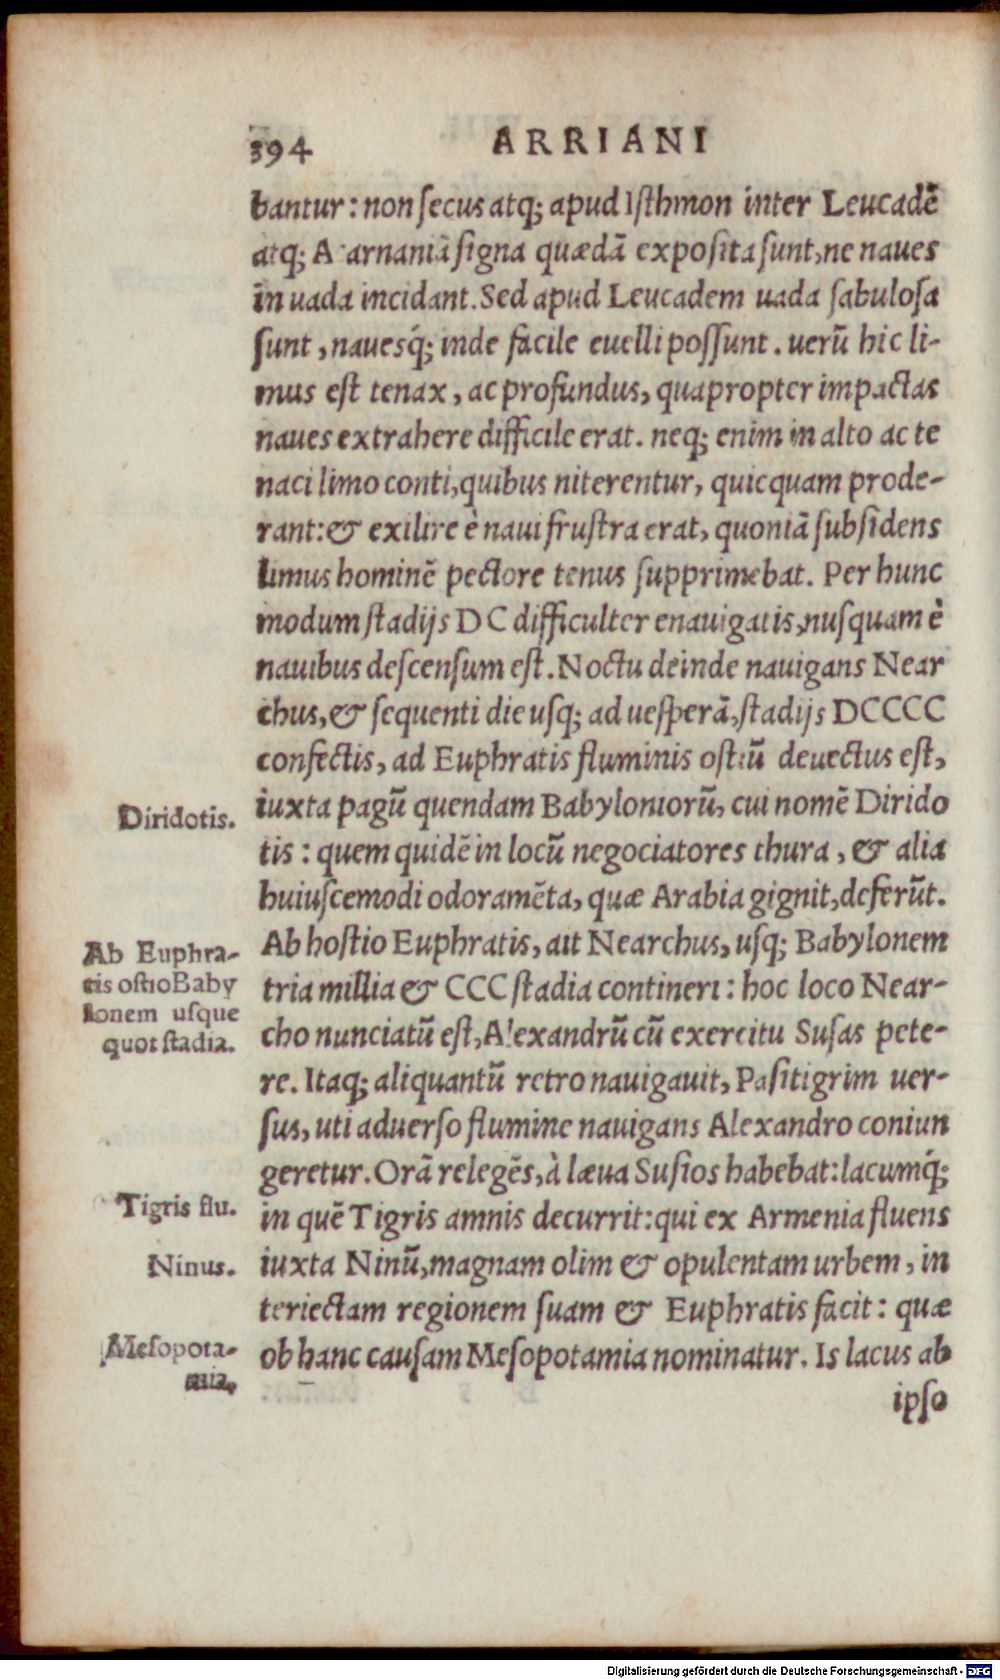 394 ARRIANI
bantur: non ſecus atq; apud Iſthmon inter Leucadē
atq; Acarnaniā ſigna quædā expoſita ſunt, ne naues
in uada incidant. Sed apud Leucadem uada ſabuloſa
ſunt, naueſq́; inde facile euelli poſſunt. uerū hic li-
mus eſt tenax, ac profundus, quapropter impactas
naues extrahere difficile erat. neq; enim in alto ac te
naci limo conti, quibus niterentur, quicquam prode-
rant: & exilire è naui fruſtra erat, quoniā ſubſidens
limus hominē pectore tenus ſupprimebat. Per hunc
modum ſtadijs DC difficulter enauigatis, nuſquam è
nauibus deſcenſum eſt. Noctu deinde nauigans Near
chus, & ſequenti die uſq; ad ueſperā, ſtadijs DCCCC
confectis, ad Euphratis fluminis oſtiū deuectus eſt,
iuxta pagū quendam Babyloniorū, cui nomē Dirido
tis: quem quidē in locū negociatores thura, & alia
huiuſcemodi odoramēta, quæ Arabia gignit, deferūt.
Ab hoſtio Euphratis, ait Nearchus, uſq; Babylonem
tria millia & CCC ſtadia contineri: hoc loco Near-
cho nunciatū eſt, Alexandrū cū exercitu Suſas pete-
re. Itaq; aliquantū retro nauigauit, Paſitigrim uer-
ſus, uti aduerſo flumine nauigans Alexandro coniun
geretur. Orā relegēs, à læua Suſios habebat: lacumq́;
in quē Tigris amnis decurrit: qui ex Armenia fluens
iuxta Ninū, magnam olim & opulentam urbem, in
teriectam regionem ſuam & Euphratis facit: quæ
ob hanc cauſam Meſopotamia nominatur. Is lacus ab
ipſo
Diridotis.
Ab Euphra-
tis oſtio Baby
lonem uſque
quot ſtadia.
Tigris flu.
Ninus.
Meſopota-
mia.
Digitalisierung gefördert durch die Deutsche Forschungsgemeinschaft - DFG